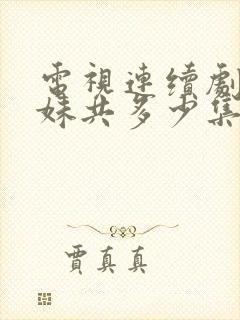 電視連續劇
妹共多少集
賈真真